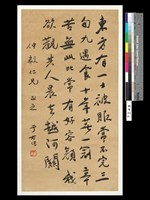 東方有一士被服常不完三
旬九遇食十年著一冠辛
苦無此比常有好容顏我
欲觀其人晨去越河關
仁兄 正之 于右任